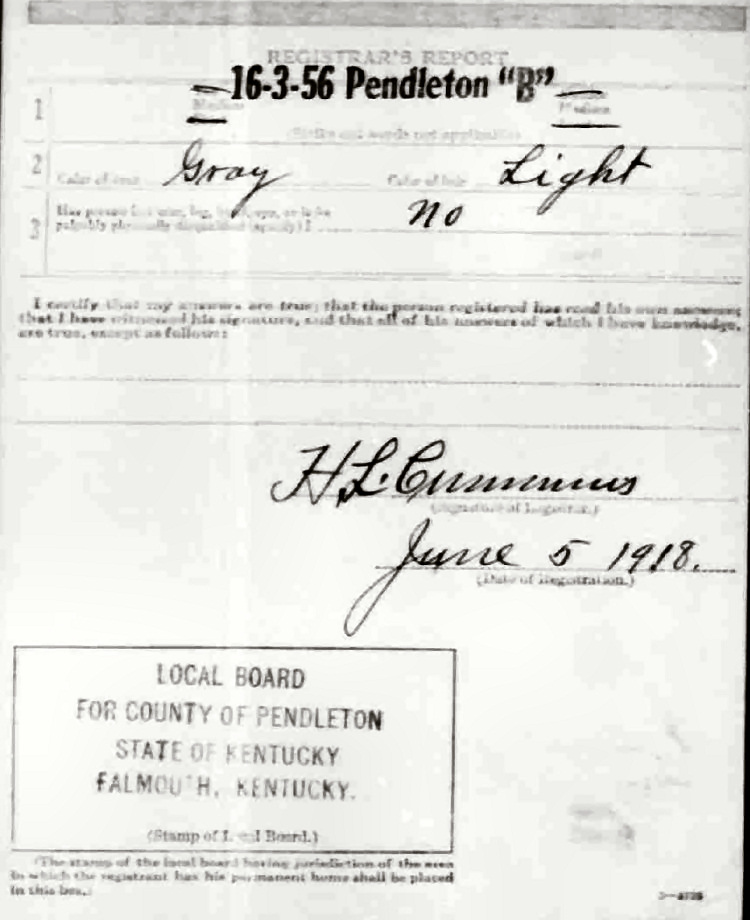 REGISTRAR'S REPORT
16-3-56 Pendleton "B"
1 Medium Medium
(Strike out words not applicable)
2 Color of eyes Gray Color of hair Light
3 Has person lost arm, leg, hand, eye, or is he
palpably physically disqualified (specify)? no
I certify that my answers are true; that the person registered has read his own answers;
that I have witnessed his signature, and that all of his answers of which I have knowledge,
are true, except as follows:
H.L. Cummins
(Signature of Registrar.)
June 5 1918.
(Date of Registration.)
LOCAL BOARD
FOR COUNTY OF PENDLETON
STATE OF KENTUCKY
FALMOUTH, KENTUCKY.
(Stamp of Local Board.)
(The stamp of the local board having jurisdiction of the area
in which the registrant has his permanent home shall be placed
in this box.)